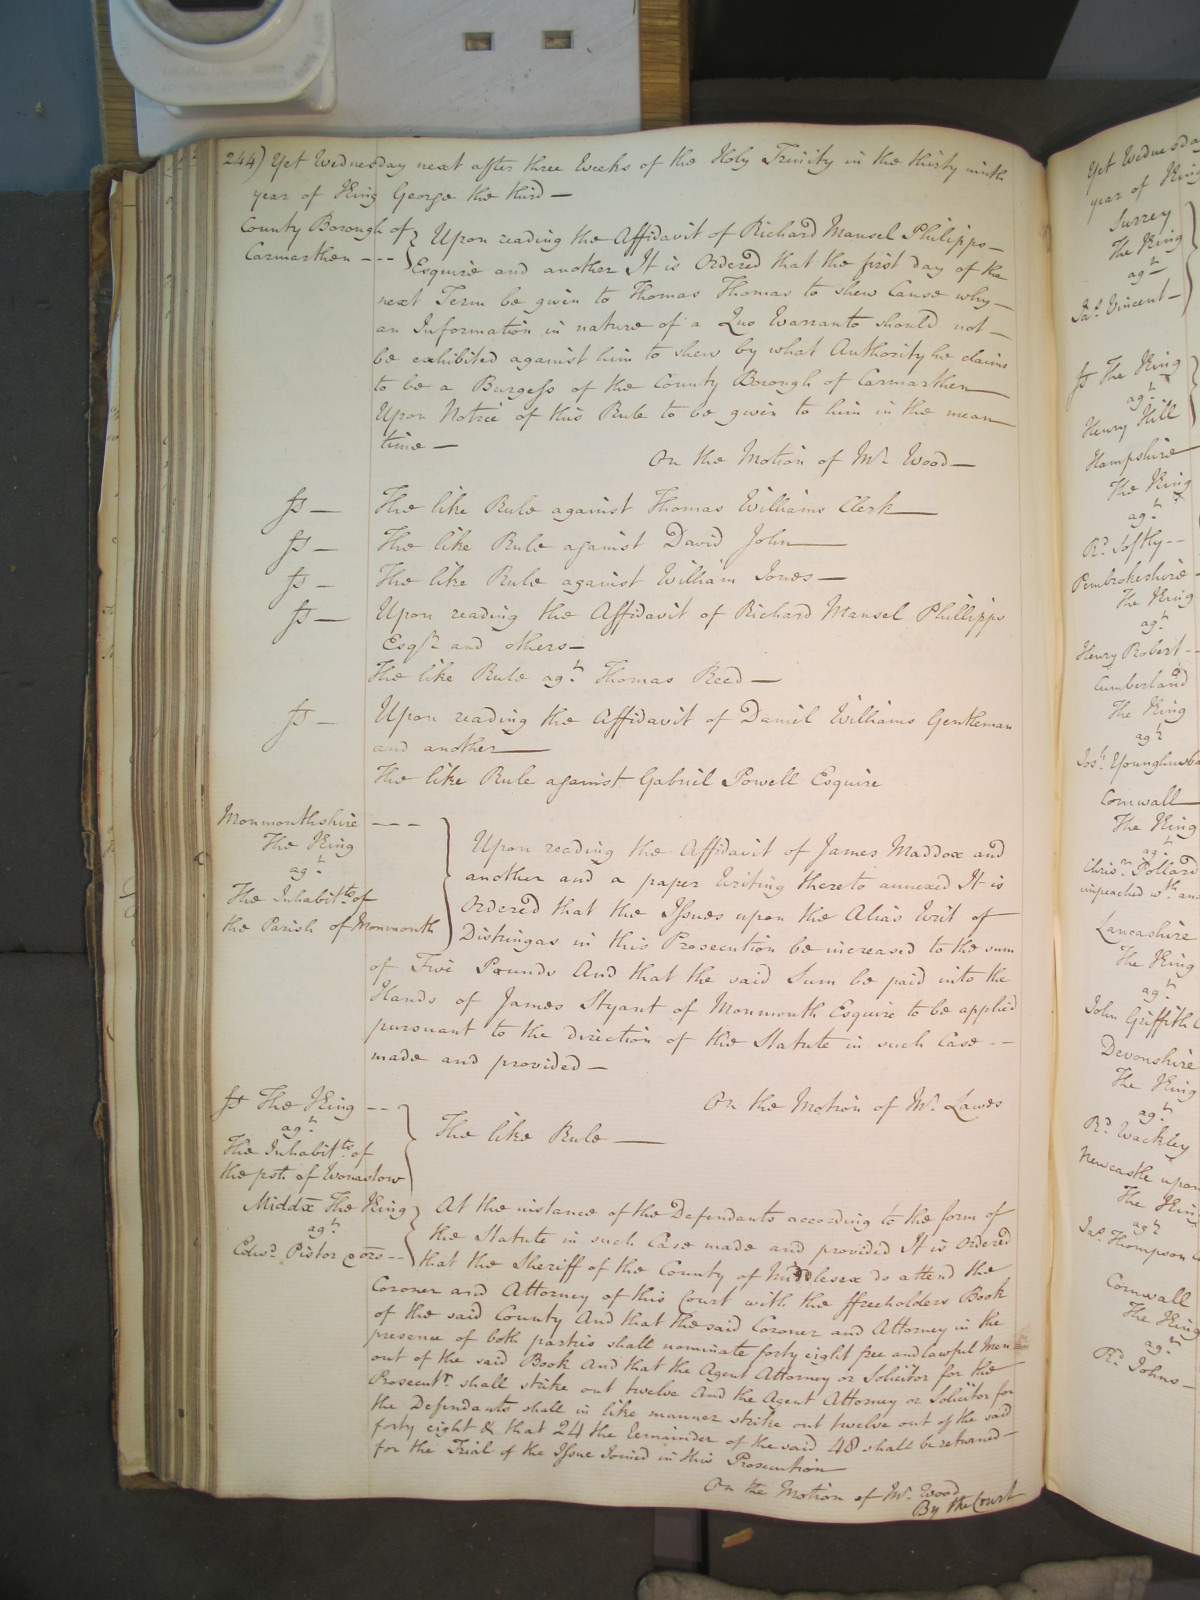 244) Yet Wednesday next after three Weeks of the Holy Trinity in the thirty ninth
year of King George the third —
County Borough of
Carmarthen - - -
Upon reading the Affidavit of Richard Mansel Philipps —
Esquire and another It is Ordered that the first day of the
next Term be given to Thomas Thomas to shew Cause why —
an Information in nature of a Quo Warranto should not —
be exhibited against him to shew by what Authority he claims
to be a Burgess of the County Borough of Carmarthen
Upon Notice of this Rule to be given to him in the mean
time —
On the Motion of Mr. Wood —
The like Rule against Thomas Williams Clerk
The like Rule against David John
The like Rule against William Jones —
Upon reading the Affidavit of Richard Mansel Phillipps
Esqr. and others —
The like Rule agt. Thomas Reed —
Upon reading the Affidavit of Daniel Williams Gentleman
and another
The like Rule against Gabriel Powell Esquire
Monmouthshire - - -
The King
agt.
The Inhabitts. of
the Parish of Monmouth
Upon reading the Affidavit of James Maddox and
another and a paper Writing thereto annexed It is
Ordered that the Issues upon the Alias Writ of
Distringas in this Prosecution be increased to the sum
of Five Pounds And that the said Sum be paid into the
Hands of James Styant of Monmouth Esquire to be applied
pursuant to the direction of the Statute in such Case - -
made and provided —
On the Motion of Mr. Lawes
The King - -
agt.
The Inhabitts. of
the psh. of Wonastow
The like Rule —
Middx The King
agt.
Edwd. Pistor & ors - -
At the instance of the Defendants according to the form of
the Statute in such Case made and provided It is Ordered
that the Sheriff of the County of Middlesex do attend the
Coroner and Attorney of this Court with the ffreeholders Book
of the said County And that the said Coroner and Attorney in the
presence of both parties shall nominate forty eight free and lawful Men
out of the said Book And that the Agent Attorney or Solicitor for the
Prosecutr. shall strike out twelve And the Agent Attorney or Solicitor for
the Defendants shall in like manner strike out twelve out of the said
forty eight & that 24 the remainder of the said 48 shall be returned —
for the Trial of the Issue Joined in this Prosecution
On the Motion of Mr. Wood
By the Court
Yet Wednesday
year of King
Surrey
The King
agt.
Jas. Vincent —
The King
agt.
Henry Hill
Hampshire
The King
agt.
Rd. Softly - -
Pembrokeshire -
The King
agt.
Henry Robert - -
Cumberland
The King
agt.
Josh.
Cornwall
The King
agt.
Chrisr. Pollard
impeached wth.
Lancashire
The King
agt.
John Griffith
Devonshire
The King
agt.
Rd. Wackley
Newcastle upon
The King
agt.
Jas. Thompson
Cornwall
The King
agt.
Rd. Johns -